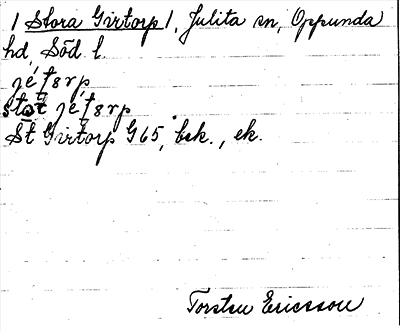 / Stora Girtorp /, Julita sn, Oppunda
hd, Söd. l.
je,tsrp
stot je,tsrp
St Girtorp G65, bsk., ek.
Torsten Ericsson